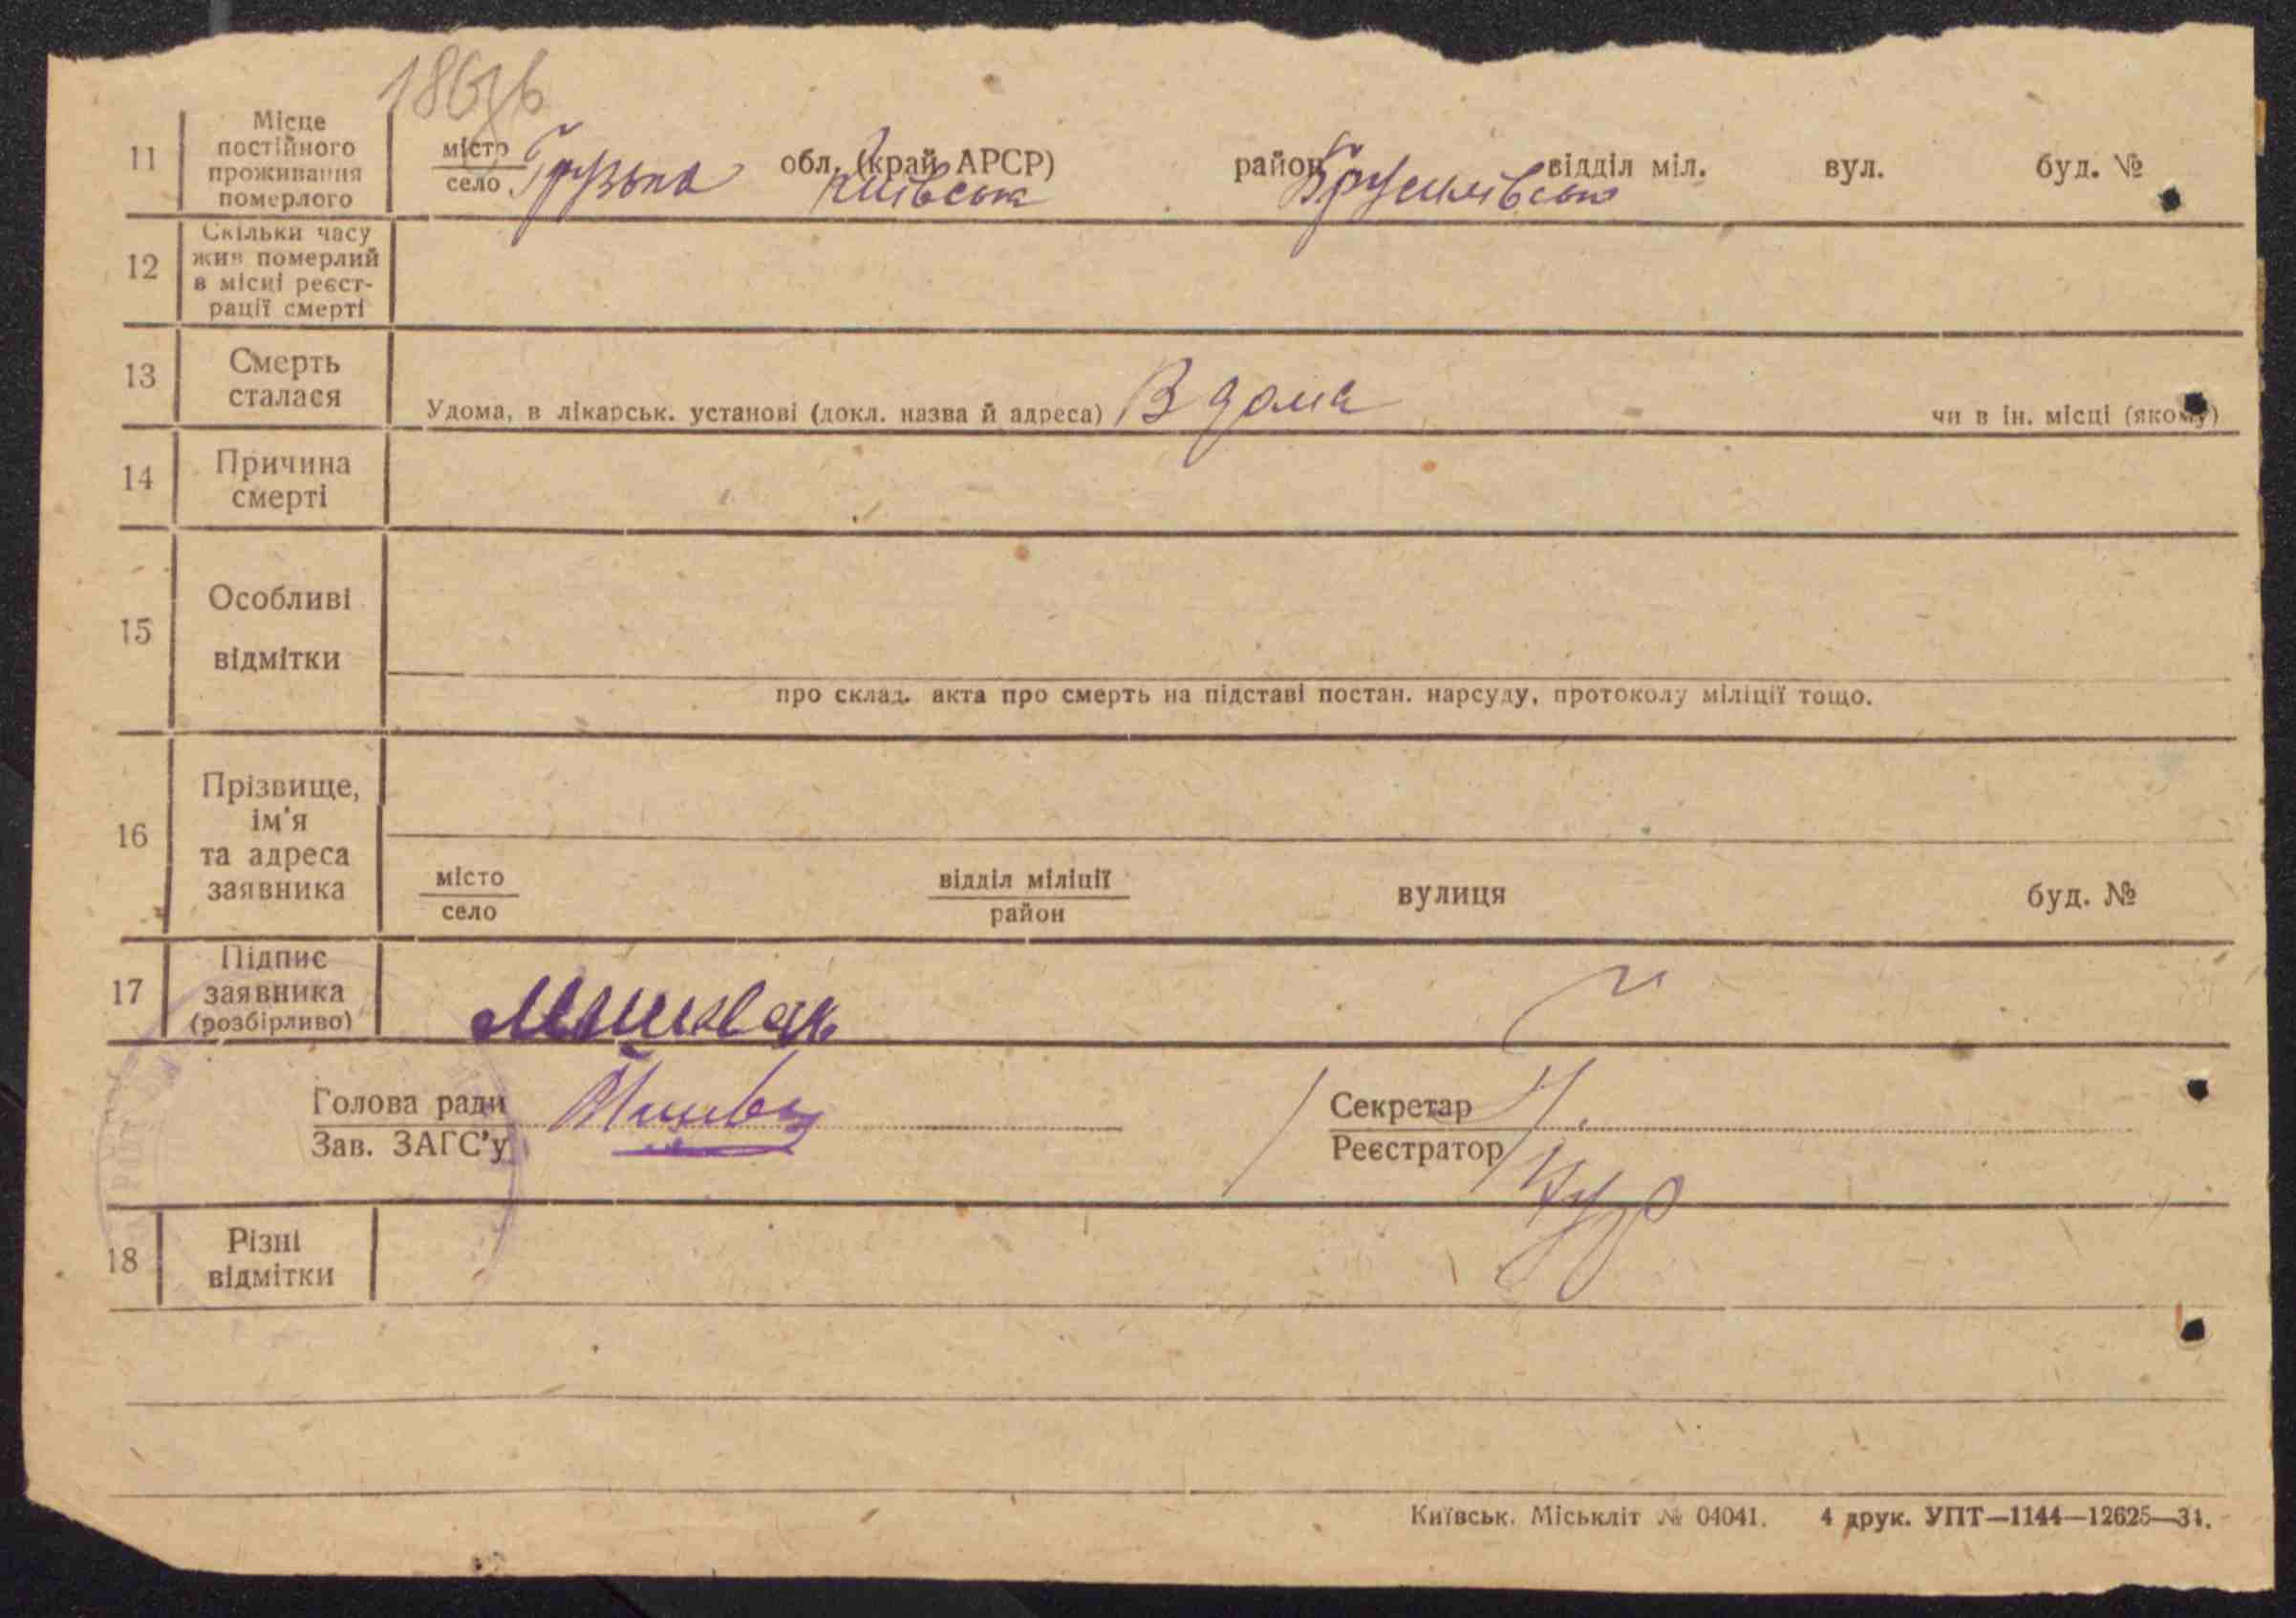 186
11 Місце постійного проживання померлого місто село Грузька обл. (край АРСР) Київська район Брусилівськ відділ міл. вул. буд. №
12 Скільки часу жив померлий в місці реєстрації смерті
13 Смерть сталася Удома, в лікарськ. установі (докл. назва й адреса) В дома чи в ін. місці (якому)
14 Причина смерті
15 Особливі відмітки
про склад. акта про смерть на підставі постан. нарсуду, протоколу міліції тощо.
16 Прізвище, ім'я та адреса заявника
місто село відділ міліції район вулиця буд. №
17 Підпис заявника (розбірливо)
Голова ради Секретар
Зав. ЗАГС'у Реєстратор
18 Різні відмітки
Київськ. Міськліт № 04041. 4 друк. УПТ—1144—12625—31.